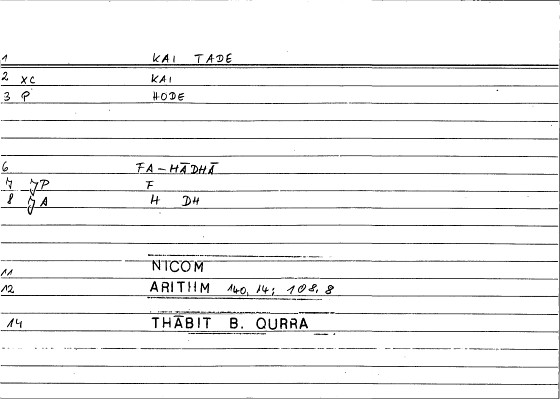 1 KAI TADE
2 XC KAI
3 P HODE
6 FA-HĀDHĀ
7 JP F
8 JA H DH
11 NICOM
12 ARITHM 140,14; 108,8
14 THĀBIT B. QURRA